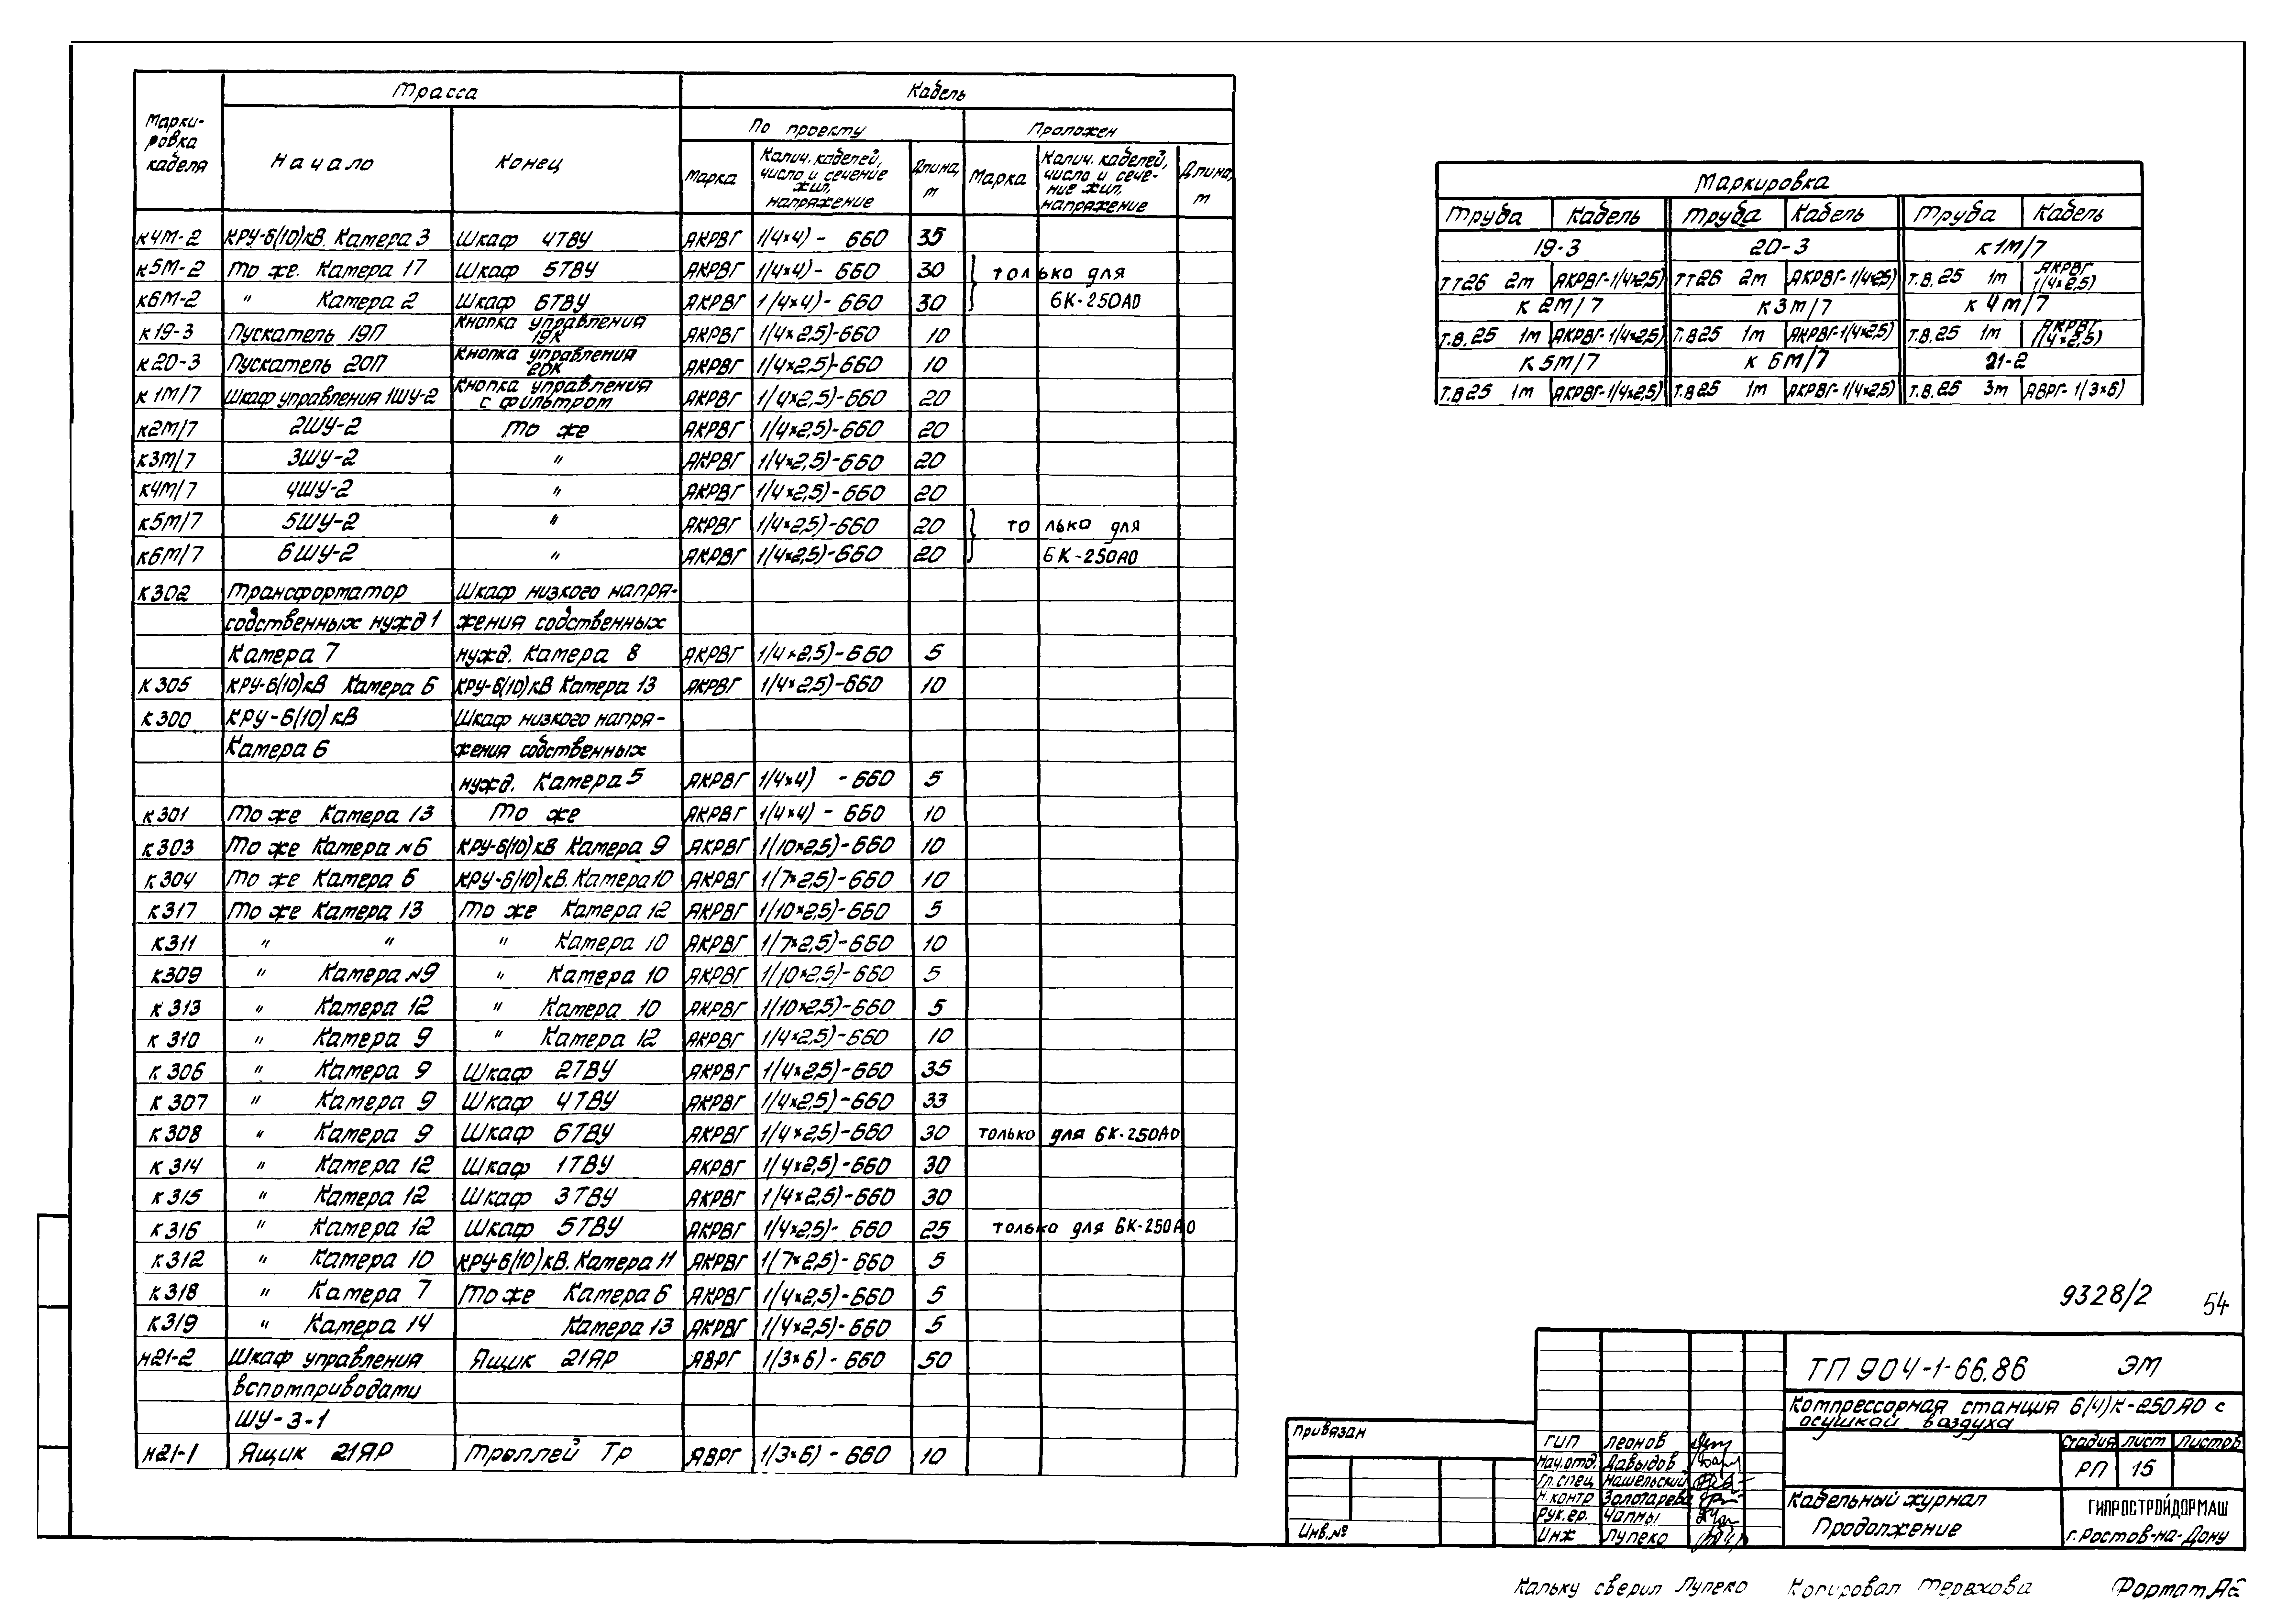 Трасса Кабель
Марки-
ровка
кабеля
Начало Конец По проекту Проложен
Марка Колич. кабелей, число и сечение жил, напряжение Длина, м Марка Колич. кабелей, число и сече-ние жил, напряжение Длина, м
К4М-2 КРУ-6(10)кВ. Камера 3 Шкаф 4ТВУ АКРВГ 1/4×4) - 660 35
К5М-2 То же. Камера 17 Шкаф 5ТВУ АКРВГ 1/4×4) - 660 30 только для
К6М-2 " Камера 2 Шкаф 6ТВУ АКРВГ 1/4×4) - 660 30 6К-250АО
К19-3 Пускатель 19П Кнопка управления 19К АКРВГ 1/4×2,5)-660 10
К20-3 Пускатель 20П Кнопка управления 20К АКРВГ 1/4×2,5)-660 10
К1М/7 Шкаф управления 1ШУ-2 Кнопка управления с фильтром АКРВГ 1/4×2,5)-660 20
К2М/7 2ШУ-2 То же АКРВГ 1/4×2,5)-660 20
К3М/7 3ШУ-2 " АКРВГ 1/4×2,5)-660 20
К4М/7 4ШУ-2 " АКРВГ 1/4×2,5)-660 20
К5М/7 5ШУ-2 " АКРВГ 1/4×2,5)-660 20 только для
К6М/7 6ШУ-2 " АКРВГ 1/4×2,5)-660 20 6К-250АО
К302 Трансформатор Шкаф низкого напря-
собственных нужд 1 жения собственных
Камера 7 нужд. Камера 8 АКРВГ 1/4×2,5)-660 5
К305 КРУ-6(10)кВ Камера 6 КРУ-6(10)кВ Камера 13 АКРВГ 1/4×2,5)-660 10
К300 КРУ-6(10)кВ Шкаф низкого напря-
Камера 6 жения собственных
нужд. Камера 5 АКРВГ 1/4×4) - 660 5
К301 То же Камера 13 То же АКРВГ 1/4×4) - 660 10
К303 То же Камера №6 КРУ-6(10)кВ Камера 9 АКРВГ 1/10×2,5)-660 10
К304 То же Камера 6 КРУ-6(10)кВ. Камера 10 АКРВГ 1/7×2,5)-660 10
К317 То же Камера 13 То же Камера 12 АКРВГ 1/10×2,5)-660 5
К311 " " " Камера 10 АКРВГ 1/7×2,5)-660 10
К309 " Камера №9 " Камера 10 АКРВГ 1/10×2,5)-660 5
К313 " Камера 12 " Камера 10 АКРВГ 1/10×2,5)-660 5
К310 " Камера 9 " Камера 12 АКРВГ 1/4×2,5)-660 10
К306 " Камера 9 Шкаф 2ТВУ АКРВГ 1/4×2,5)-660 35
К307 " Камера 9 Шкаф 4ТВУ АКРВГ 1/4×2,5)-660 33
К308 " Камера 9 Шкаф 6ТВУ АКРВГ 1/4×2,5)-660 30 только для 6К-250АО
К314 " Камера 12 Шкаф 1ТВУ АКРВГ 1/4×2,5)-660 30
К315 " Камера 12 Шкаф 3ТВУ АКРВГ 1/4×2,5)-660 30
К316 " Камера 12 Шкаф 5ТВУ АКРВГ 1/4×2,5)-660 25 только для 6К-250АО
К312 " Камера 10 КРУ-6(10)кВ. Камера 11 АКРВГ 1/7×2,5)-660 5
К318 " Камера 7 То же Камера 6 АКРВГ 1/4×2,5)-660 5
К319 " Камера 14 Камера 13 АКРВГ 1/4×2,5)-660 5
Н21-2 Шкаф управления Ящик 21ЯР АВРГ 1(3×6) - 660 50
вспомприводами
ШУ-3-1
Н21-1 Ящик 21ЯР Троллей Тр АВРГ 1/3×6) - 660 10
Маркировка
Труба Кабель Труба Кабель Труба Кабель
19-3 20-3 К1М/7
ТТ26 2м АКРВГ-1/4×2,5) ТТ26 2м АКРВГ-1/4×2,5) Т.В.25 1м АКРВГ 1/4×2,5)
К2М/7 К3М/7 К4М/7
Т.В.25 1м АКРВГ-1/4×2,5) Т.В25 1м АКРВГ-1/4×2,5) Т.В.25 1м АКРВГ 1/4×2,5)
К5М/7 К6М/7 21-2
Т.В25 1м АКРВГ-1/4×2,5) Т.В25 1м АКРВГ-1/4×2,5) Т.В.25 3м АВРГ-1/3×6)
9328/2 54
ТП 904-1-66.86 ЭМ
Компрессорная станция 6(4)К-250АО с
осушкой воздуха
Привязан
Инв.№
ГИП Леонов
Нач.отд. Давыдов
Гл.спец Нашельский
Н.контр Золотарева
Рук.гр. Чапны
Инж Лупеко
Стадия Лист Листов
РП 15
Кабельный журнал
Продолжение
ГИПРОСТРОЙДОРМАШ
г.Ростов-на-Дону
Кальку сверил Лупеко Копировал Терехова Формат А2